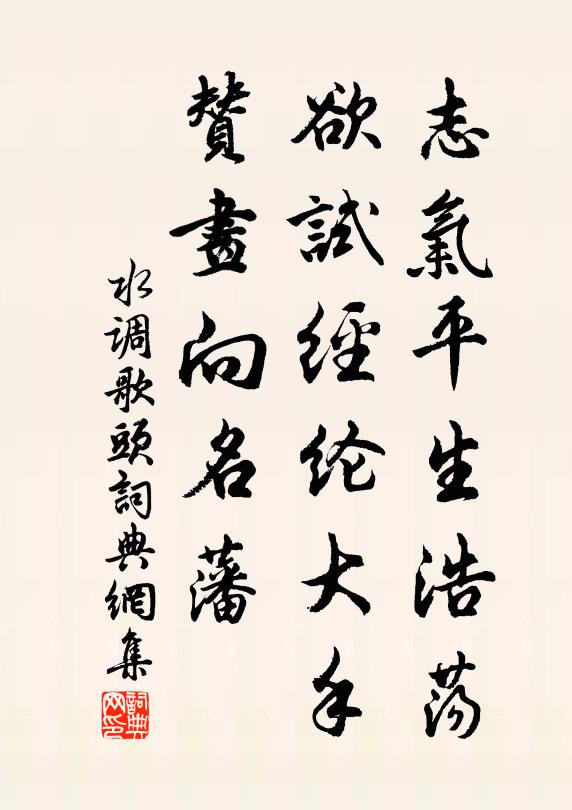 志氣平生浩荡
欲試經纶大手
贊畫向名藩
水调歌頭詞典網集
詞典网印